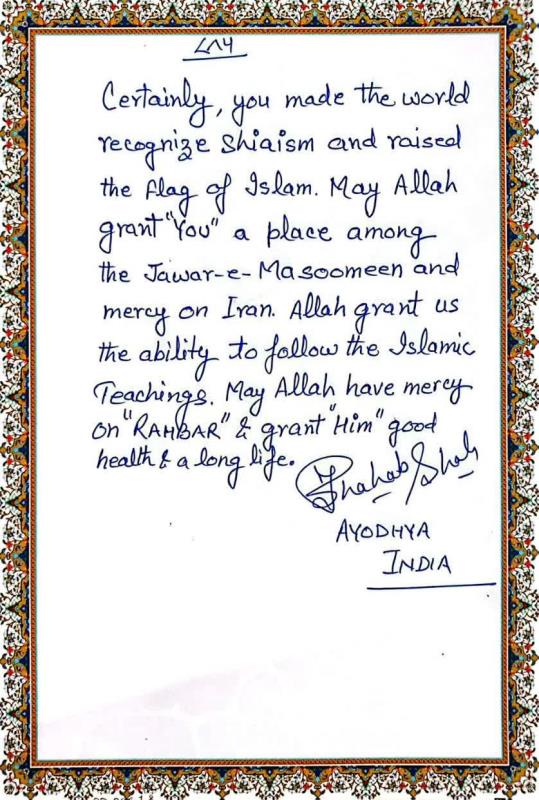 ۷۸۶
Certainly, you made the world
recognize Shiaism and raised
the flag of Islam. May Allah
grant "You" a place among
the Jawar-e-Masoomeen and
mercy on Iran. Allah grant us
the ability to follow the Islamic
Teachings. May Allah have mercy
on "RAHBAR" & grant "Him" good
health & a long life.
Shahab Shah
AYODHYA
INDIA